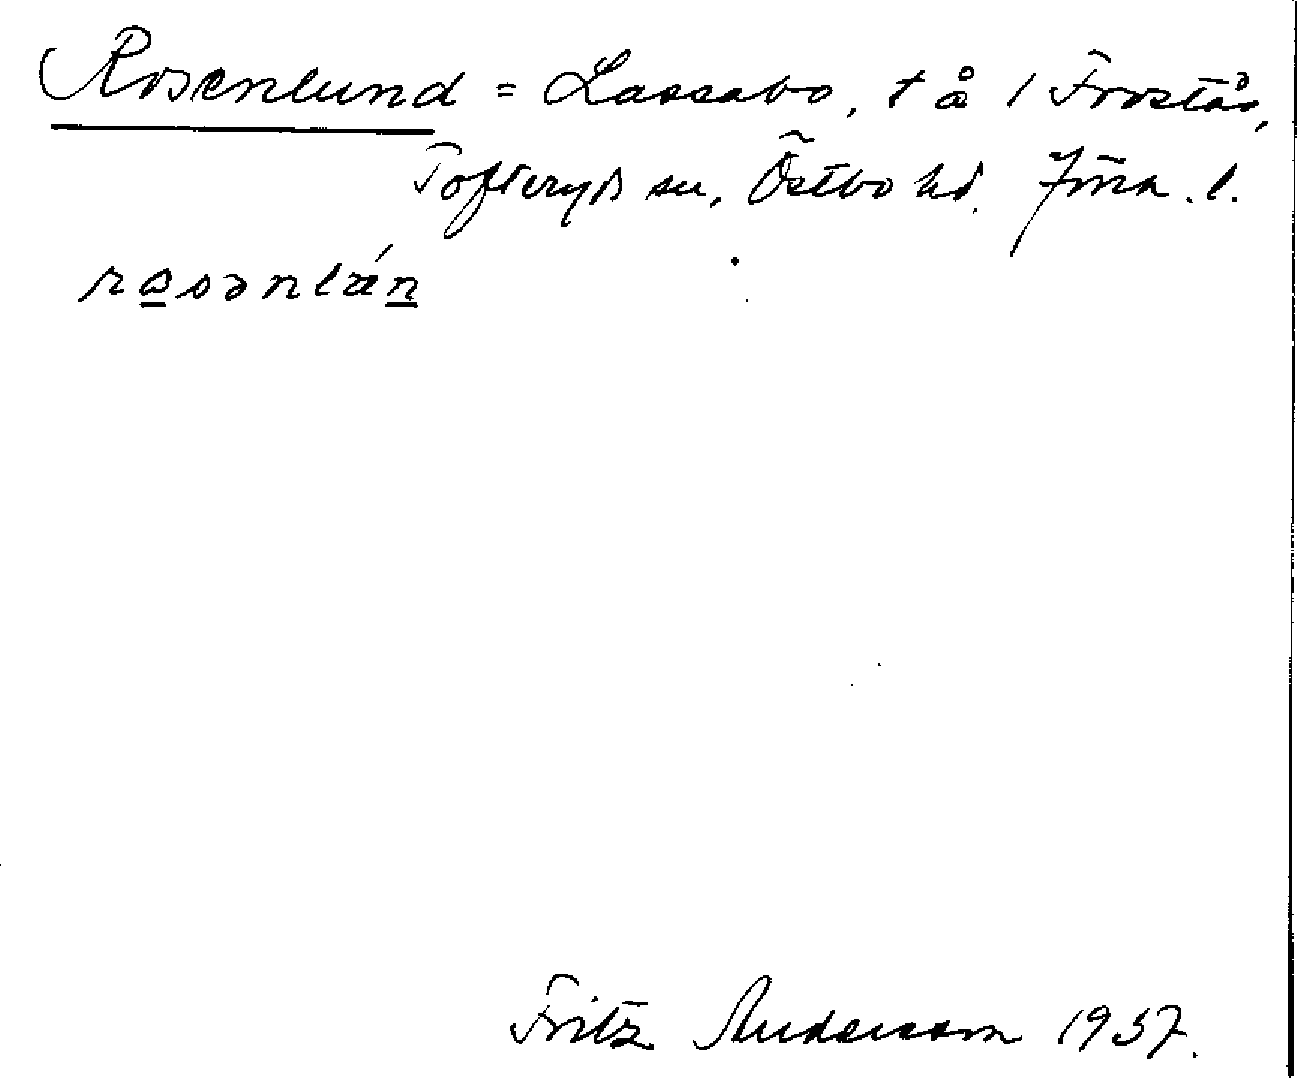 Rosenlund = Lassabo, t å 1 Frostås,
Tofteryds sn, Östbo hd. Jönk. l.
Fritz Andersson 1937.